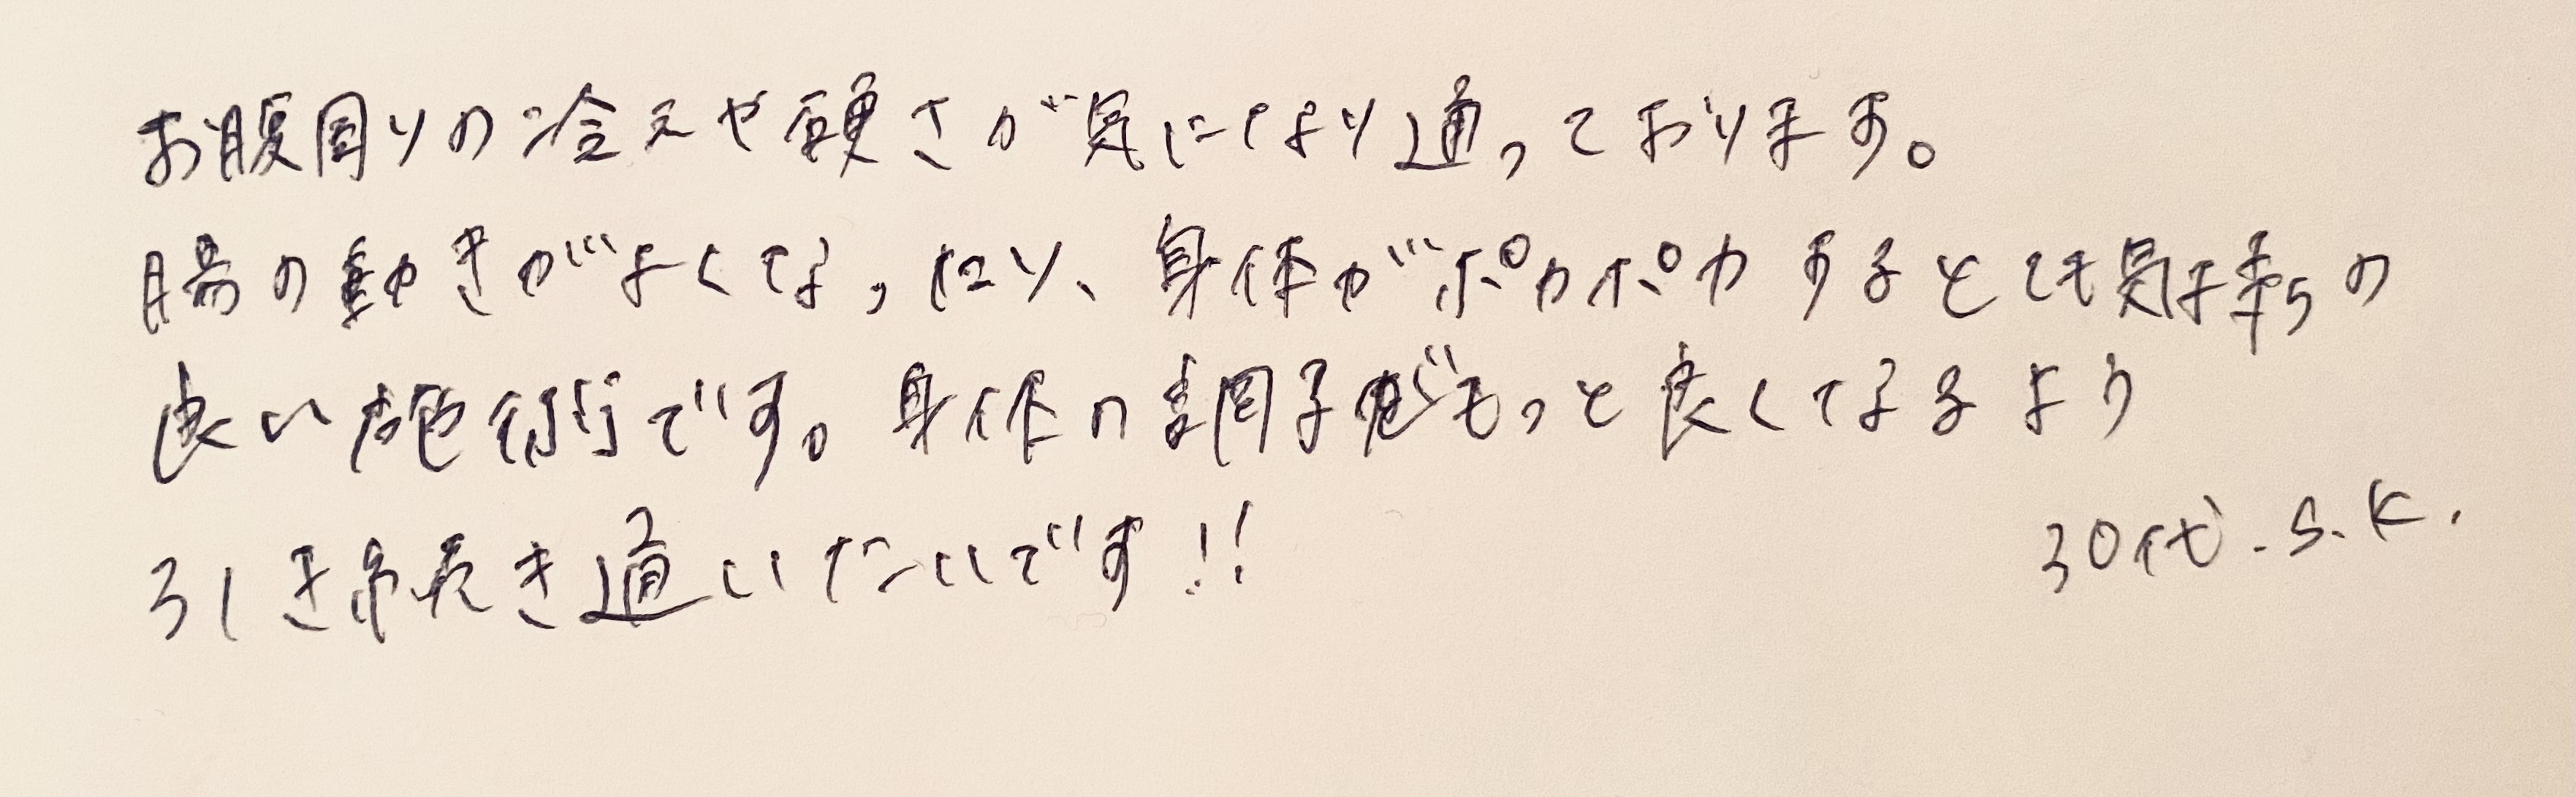 お腹周りの冷えや硬さが気になり通っております。
腸の動きがよくなったり、身体がポカポカするとても気持ちの
良い施術です。身体の調子がもっと良くなるよう
引き続き通いたいです!!
30代.S.K.